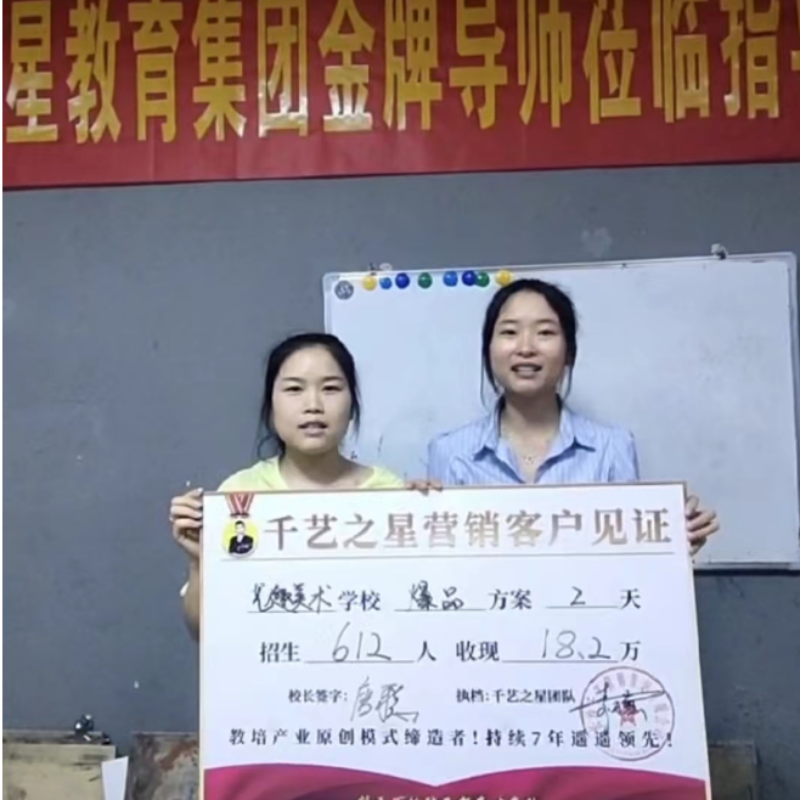 星教育集团金牌导师莅临指
千艺之星营销客户见证
美术学校 爆品 方案 2 天
招生 612 人 收现 18.2 万
校长签字: 执档:千艺之星团队
教培产业原创模式缔造者!持续7年遥遥领先!